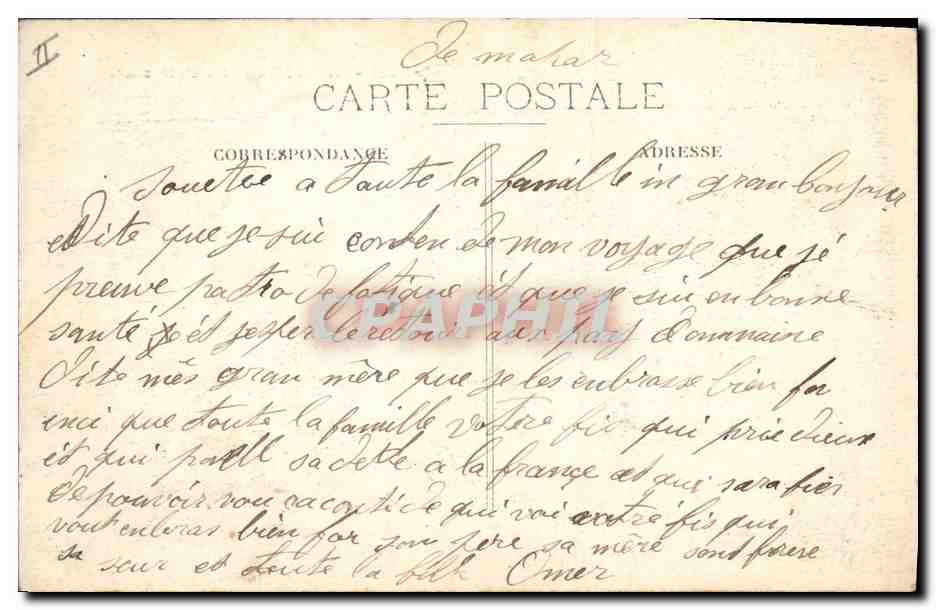 II
De mahar
CARTE POSTALE
CORRESPONDANCE
ADRESSE
a toute la famille in gran bonjour
et Dite que je sui conten de mon voyage que jé
preuve pa tro de fatigue ét que je sui en bonne
santé ét j'esper le retour aux pays
Dite mês gran mêre que je les enbrasse bien for
inci que toute la famille votre fis qui prie dieux
ét qui paell sa dette a la france et qui sera fier
de pouvoir vou raconté de qui voi votre fis qui
vout enbras bien for son pere sa mêre sont frere
sa seur et toute la Omer
CPAPHIL